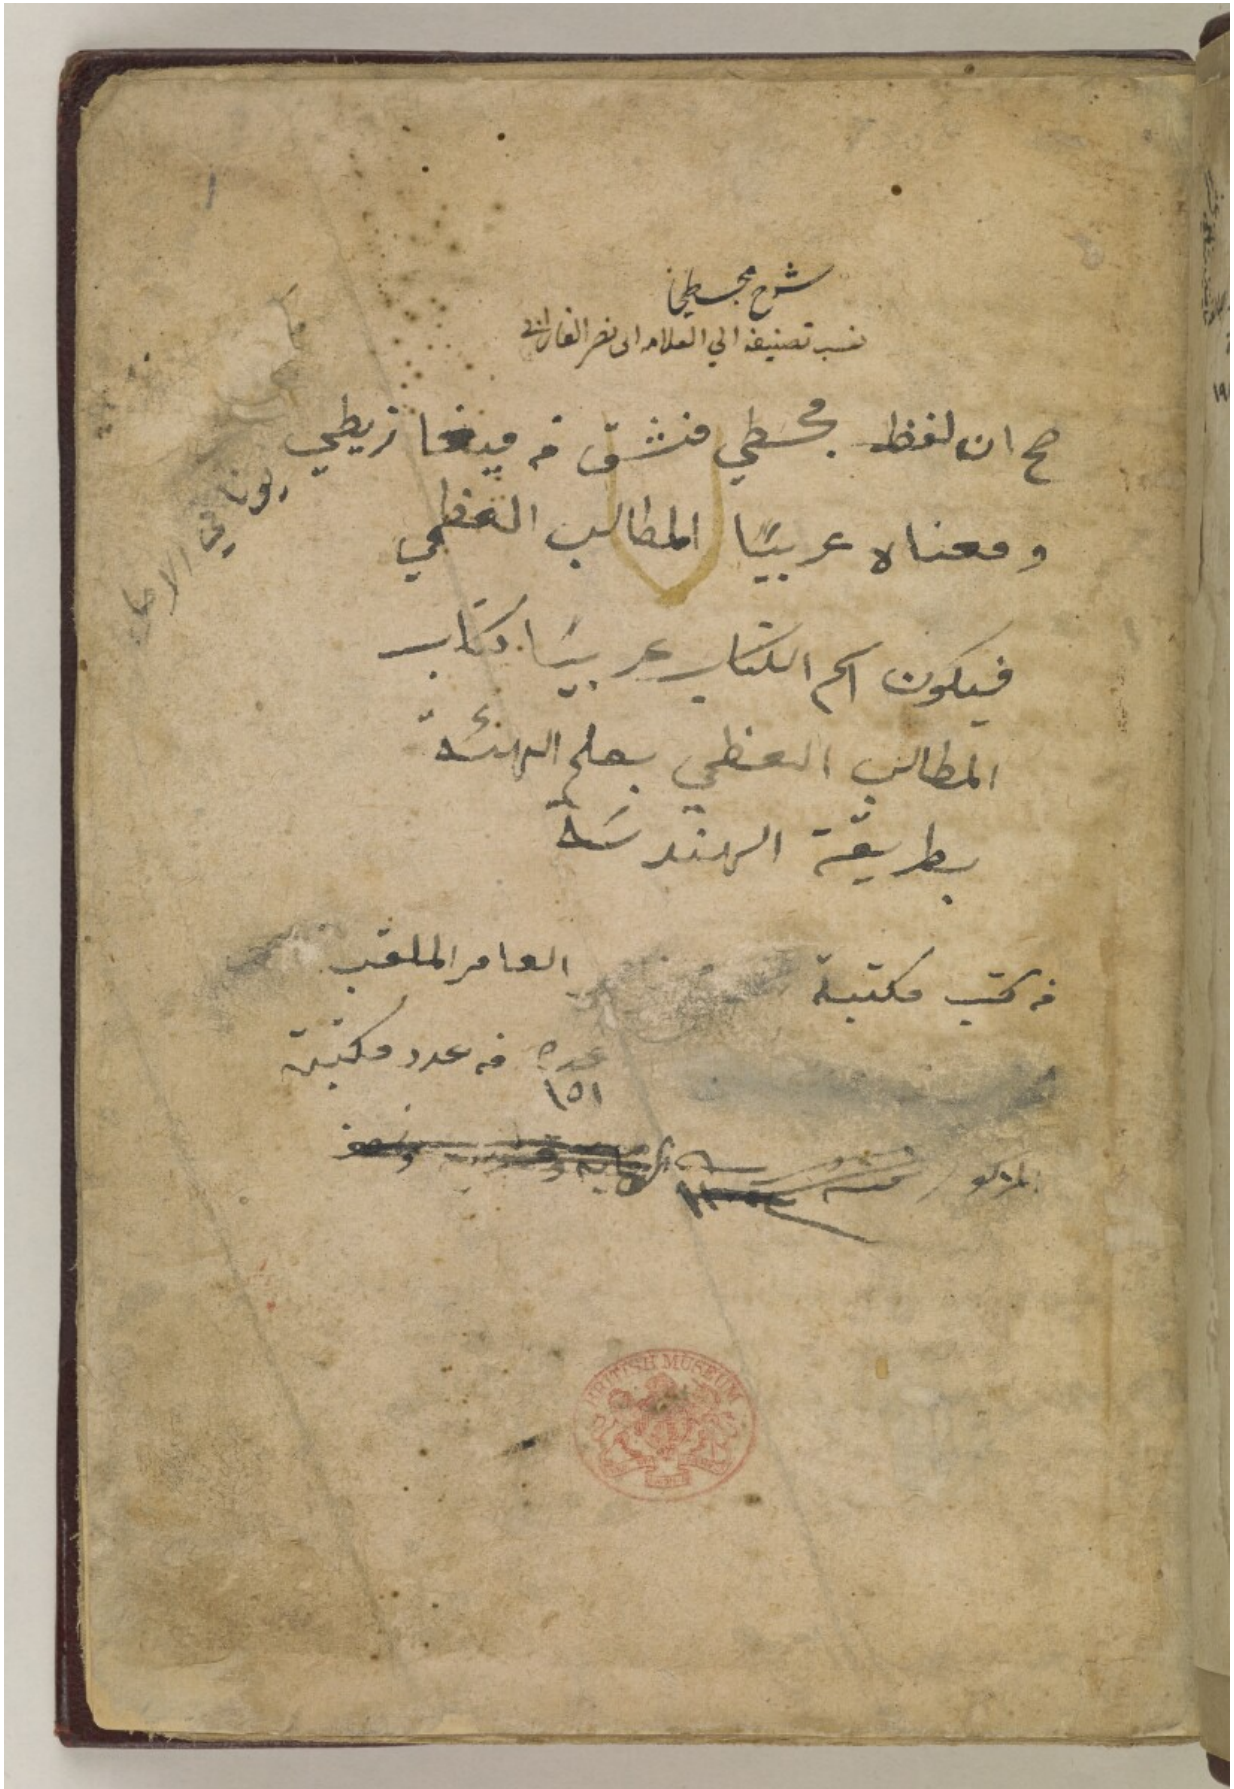 شرح مجسطي
نسب تصنيفه الي العلامه ابي نصر الفارابي
صح ان لفظ مجسطي منشق من ميغازيطي
يوناني الاصل
ومعناه عربيًا المطالب العظمي
فيكون اسم الكتاب عربيًا كتاب
المطالب العظمي بعلم الهئية
بطريقة الهندسة
من كتب مكتبة العامر الملقب
عدده من عدد مكتبته
١٥١
المذكور
BRITISH MUSEUM